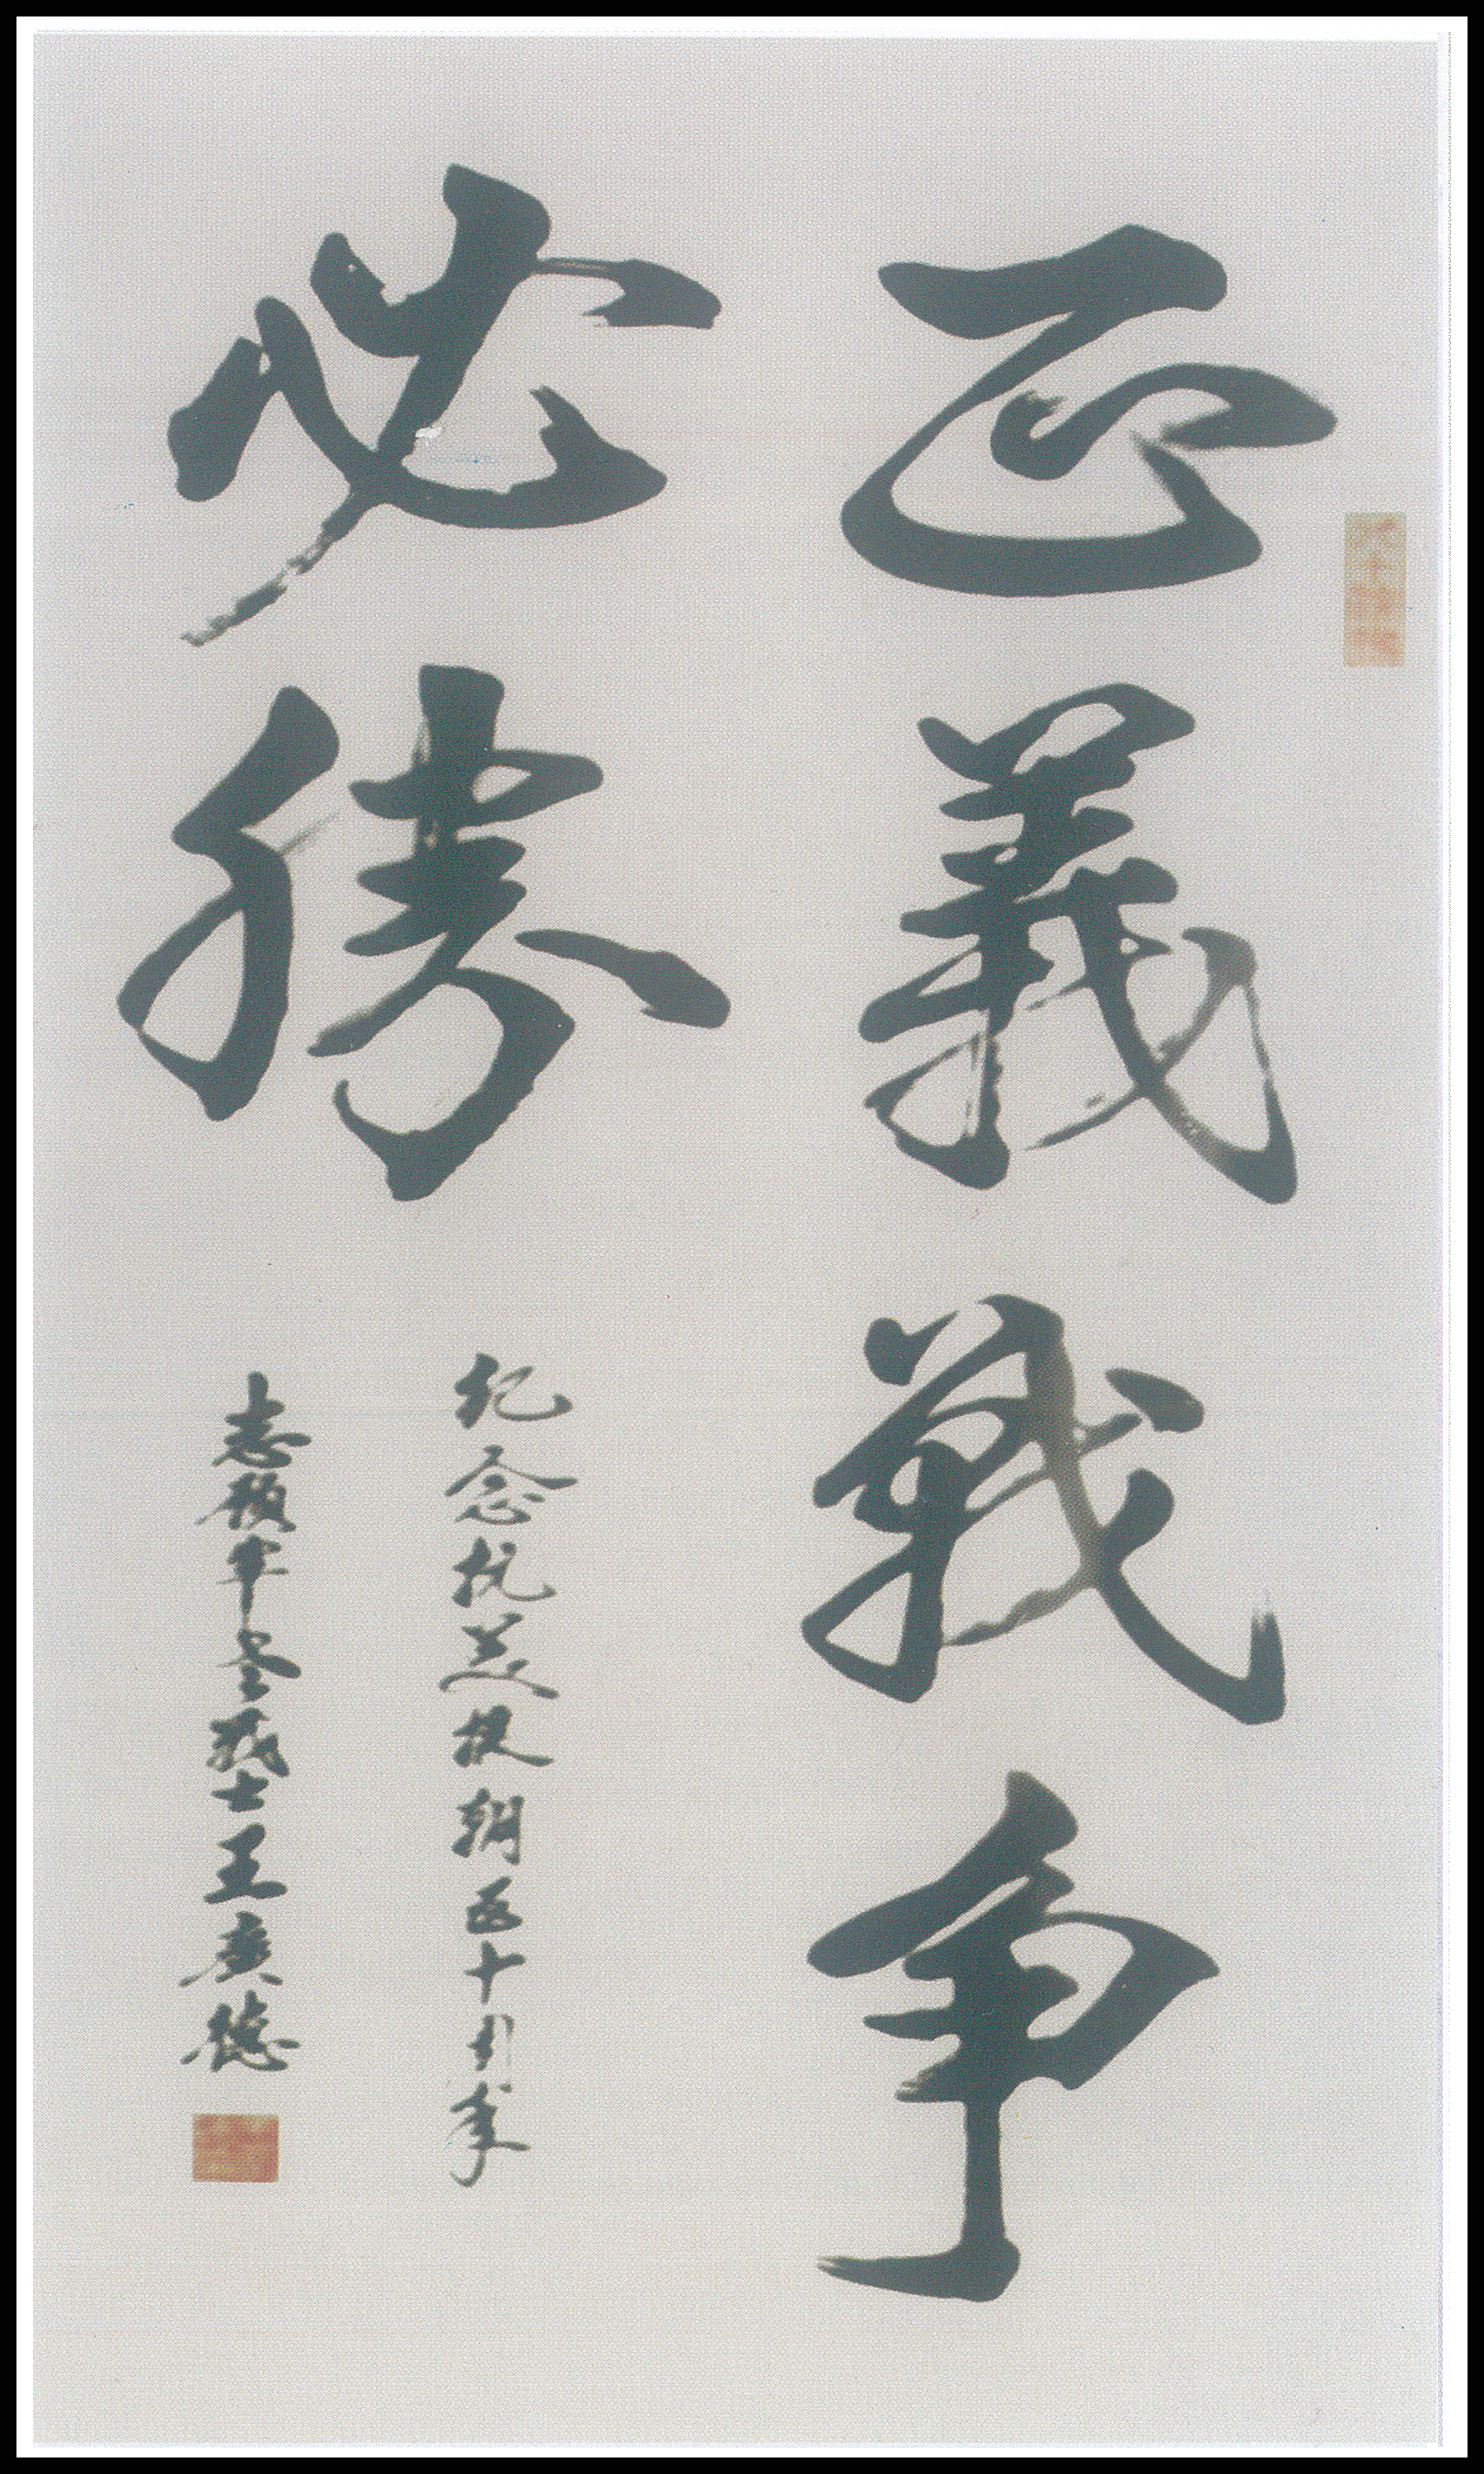 正義戰争
必勝
纪念抗美援朝五十周年
志願军老战士王廣德